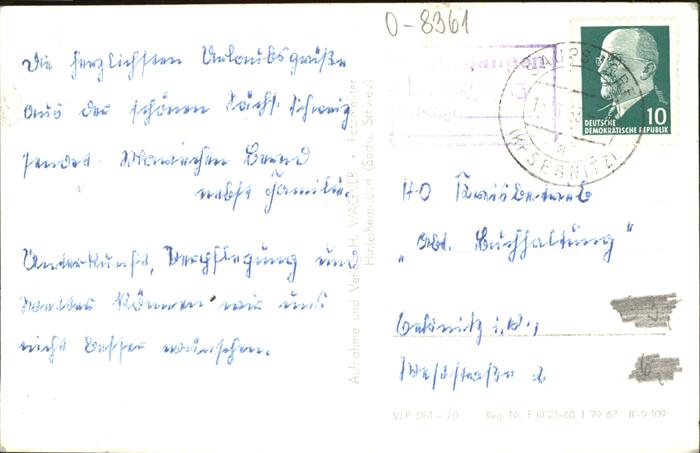 O-8361
Die herzlichsten Urlaubsgrüße
aus der schönen Sächs. Schweiz
sendet Mariechen Bernd
nebst Familie.
Unterkunft, Verpflegung und
Wetter können wir uns
nicht besser wünschen.
Aufnahme und Verlag H. WAGNER • Fotomeister
Hinterhermsdorf (Sächs. Schweiz)
DEUTSCHE
DEMOKRATISCHE REPUBLIK
10
(Kr SEBNITZ)
a
HO Kreisbetrieb
"Abt. Buchhaltung"
Oelsnitz i. V.,
VLP DM – 20 Reg. Nr. F III 25-60 J 79 62 II-9-109